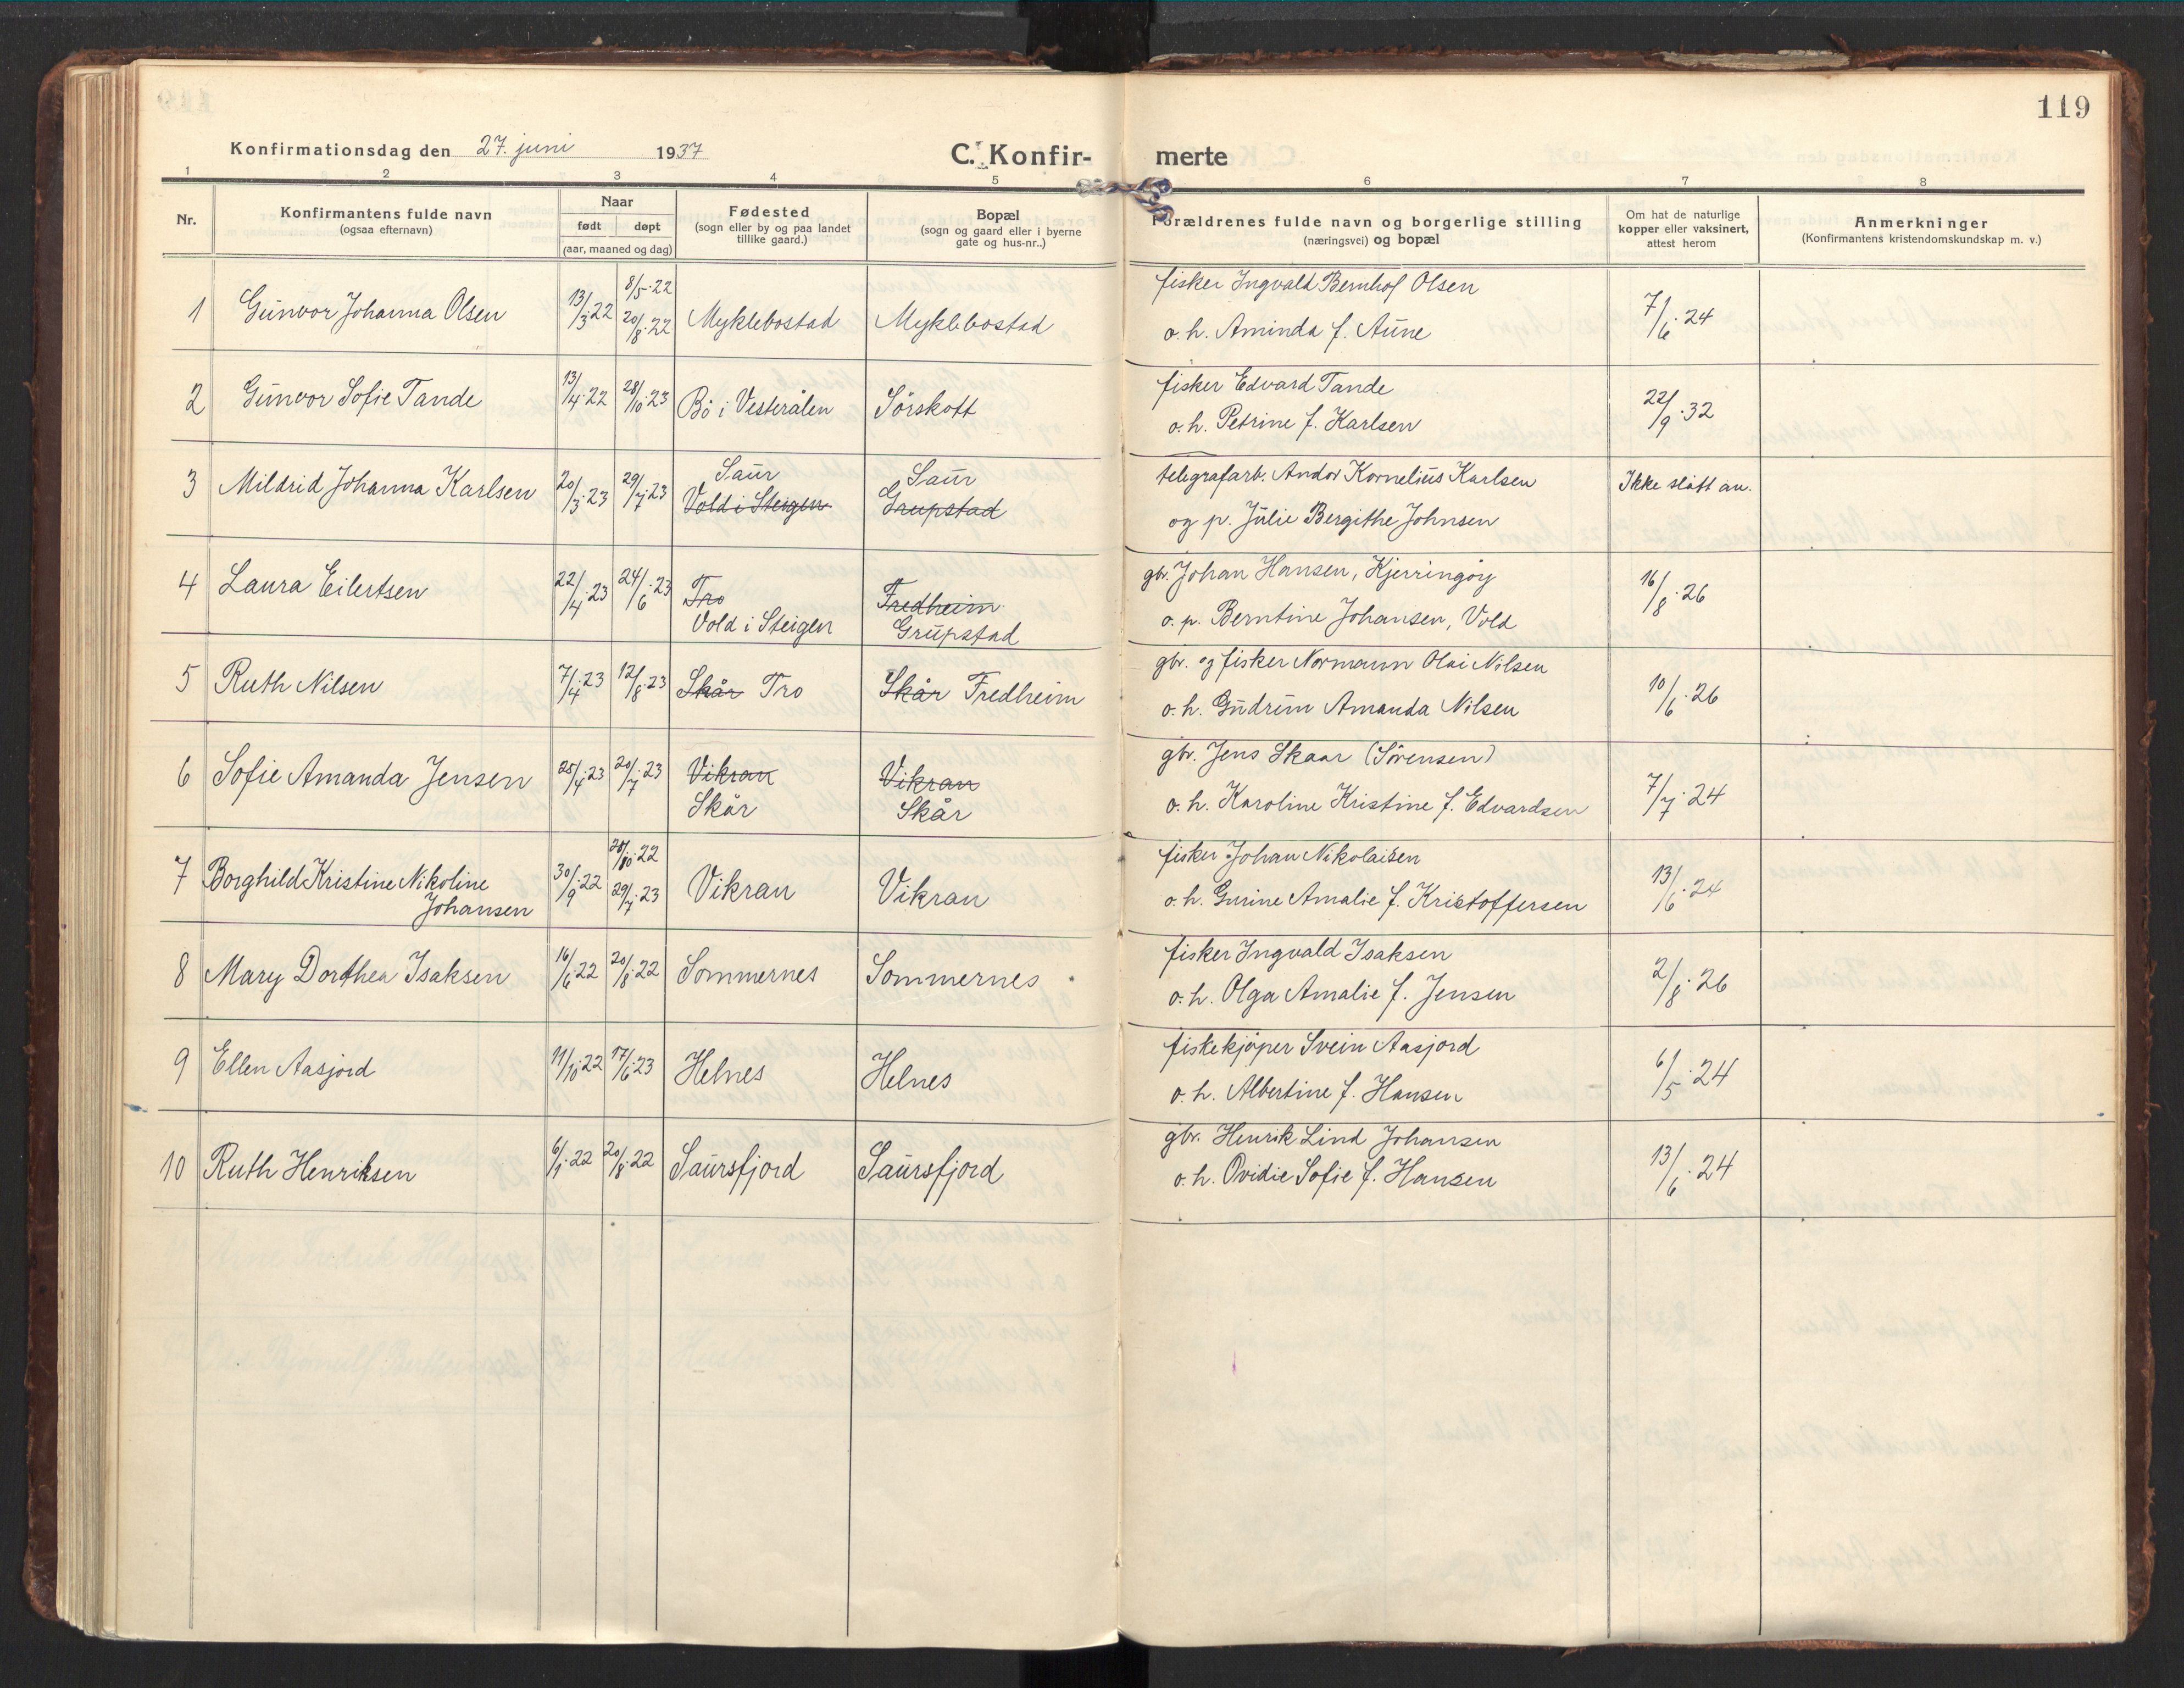 119
Konfirmationsdag den 27. juni 1937
C. Konfirmerte
1 2 3 4 5 6 7 8
Nr.
Konfirmantens fulde navn
(ogsaa efternavn)
Naar
født døpt
(aar, maaned og dag)
Fødested
(sogn eller by og paa landet
tillike gaard.)
Bopæl
(sogn og gaard eller i byerne
gate og hus-nr.,)
Forældrenes fulde navn og borgerlige stilling
(næringsvei) og bopæl
Om hat de naturlige
kopper eller vaksinert,
attest herom
Anmerkninger
(Konfirmantens kristendomskundskap m. v.)
1 Gunvor Johanna Olsen 13/3.22 8/5.22 20/8.22 Myklebostad Myklebostad
fisker Ingvald Bernhof Olsen
o. h. Aminda f. Aune
7/6.24
2 Gunvor Sofie Tande 13/4.22 28/10.23 Bö i Vesterålen Sörskott
fisker Edvard Tande
o. h. Petrine f. Karlsen
22/9.32
3 Mildrid Johanna Karlsen 20/3.23 29/7.23 Saur Saur
Vold i Steigen Grupstad
telegrafarb. Andor Kornelius Karlsen
og p. Julie Bergithe Johnsen
Ikke slått an.
4 Laura Eilertsen 22/4.23 24/6.23 Tro Fredheim
Vold i Steigen Grupstad
gbr. Johan Hansen, Kjerringöy
o. p. Berntine Johansen, Vold
16/8.26
5 Ruth Nilsen 7/4.23 12/8.23 Skår Tro Skår Fredheim
gbr. og fisker Normann Olai Nilsen
o. h. Gudrun Amanda Nilsen
10/6.26
6 Sofie Amanda Jensen 25/4.23 20/7.23 Vikran Vikran
Skår Skår
gbr. Jens Skaar (Sörensen)
o. h. Karoline Kristine f. Edvardsen
7/7.24
7 Borghild Kristine Nikoline
Johansen 30/9.22 28/10.22 29/7.23 Vikran Vikran
fisker Johan Nikolaisen
o. h. Gurine Amalie f. Kristoffersen
13/6.24
8 Mary Dorthea Isaksen 16/6.22 20/8.22 Sommernes Sommernes
fisker Ingvald Isaksen
o. h. Olga Amalie f. Jensen
2/8.26
9 Ellen Aasjord 11/10.22 17/6.23 Helnes Helnes
fiskekjöper Svein Aasjord
o. h. Albertine f. Hansen
6/5.24
10 Ruth Henriksen 6/1.22 20/8.22 Saursfjord Saursfjord
gbr. Henrik Lind Johansen
o. h. Ovidie Sofie f. Hansen
13/6.24